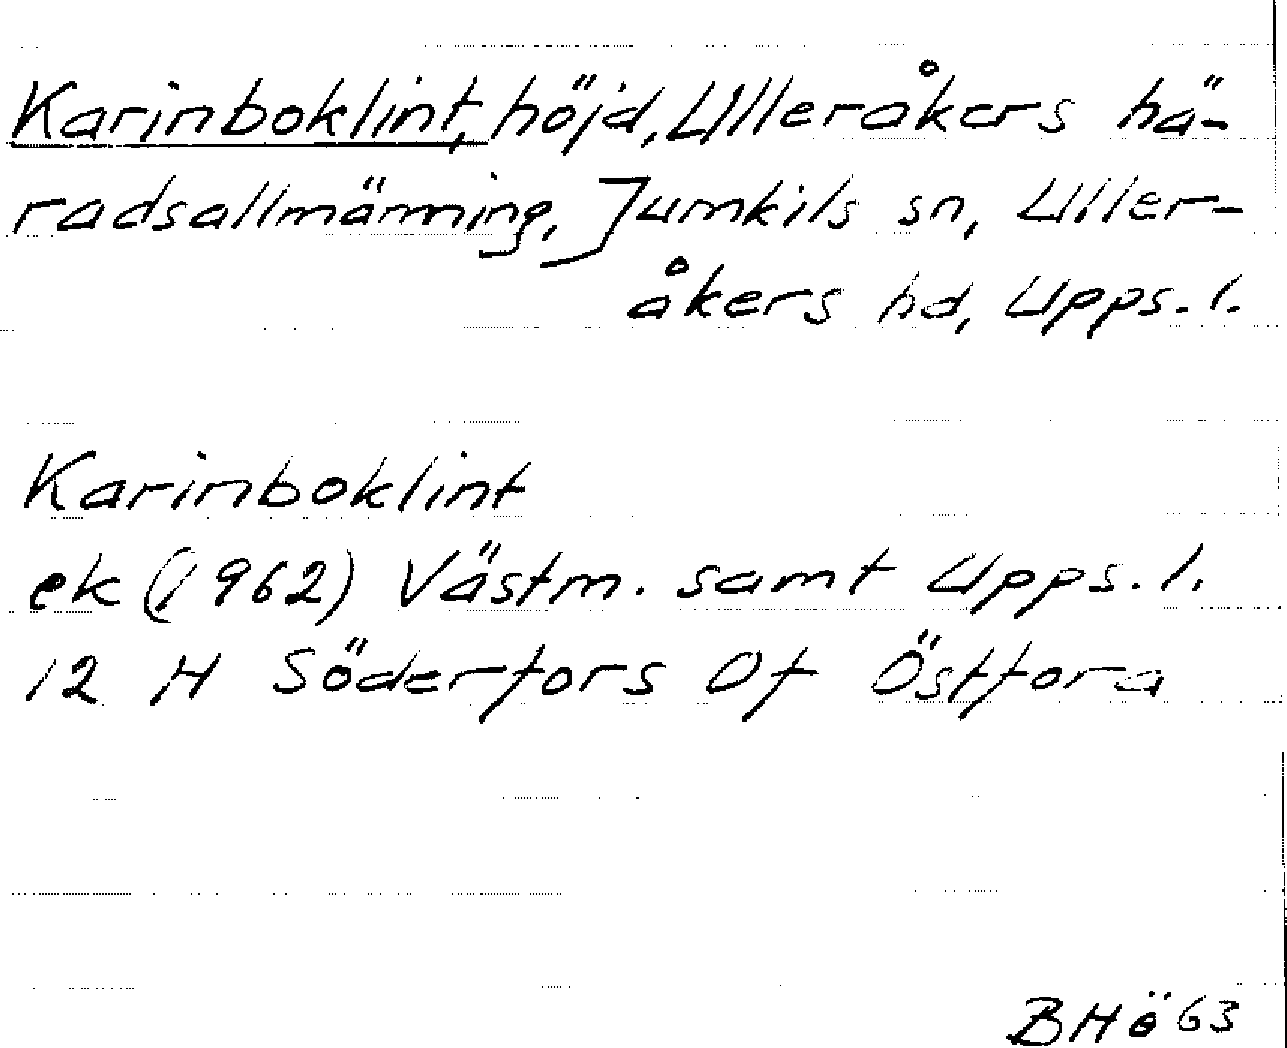 Karinboklint, höjd, Ulleråkers hä-
radsallmänning, Jumkils sn, Uller-
åkers hd, Upps. l.
Karinboklint
ek (1962) Västm. samt Upps. l.
12 H Söderfors 0f Östfora
BHö 63